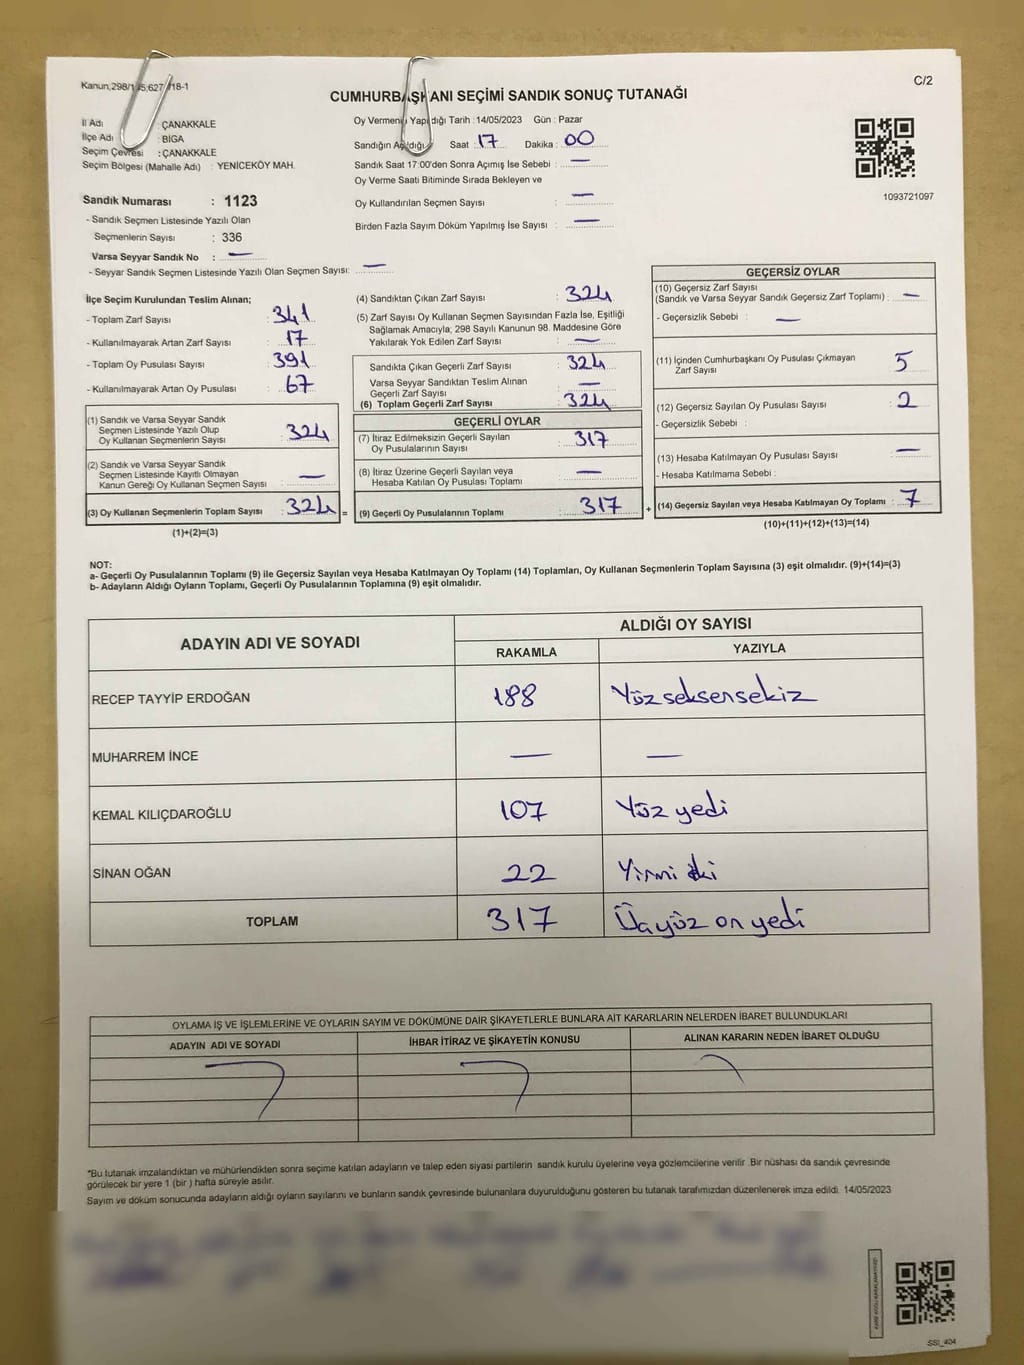 Kanun;298/105;627 /18-1
C/2
CUMHURBAŞKANI SEÇİMİ SANDIK SONUÇ TUTANAĞI
İl Adı : ÇANAKKALE
İlçe Adı : BİGA
Seçim Çevresi : ÇANAKKALE
Seçim Bölgesi (Mahalle Adı) : YENİCEKÖY MAH.
Oy Vermenin Yapıldığı Tarih : 14/05/2023 Gün : Pazar
Sandığın Açıldığı Saat : 17 Dakika : 00
Sandık Saat 17:00'den Sonra Açımış İse Sebebi : —
Oy Verme Saati Bitiminde Sırada Bekleyen ve
Oy Kullandırılan Seçmen Sayısı : —
Birden Fazla Sayım Döküm Yapılmış İse Sayısı : —
1093721097
Sandık Numarası : 1123
- Sandık Seçmen Listesinde Yazılı Olan
Seçmenlerin Sayısı : 336
Varsa Seyyar Sandık No : —
- Seyyar Sandık Seçmen Listesinde Yazılı Olan Seçmen Sayısı: —
İlçe Seçim Kurulundan Teslim Alınan;
- Toplam Zarf Sayısı : 341
- Kullanılmayarak Artan Zarf Sayısı : 17
- Toplam Oy Pusulası Sayısı : 391
- Kullanılmayarak Artan Oy Pusulası : 67
(1) Sandık ve Varsa Seyyar Sandık
Seçmen Listesinde Yazılı Olup
Oy Kullanan Seçmenlerin Sayısı : 324
(2) Sandık ve Varsa Seyyar Sandık
Seçmen Listesinde Kayıtlı Olmayan
Kanun Gereği Oy Kullanan Seçmen Sayısı : —
(3) Oy Kullanan Seçmenlerin Toplam Sayısı : 324 =
(1)+(2)=(3)
(4) Sandıktan Çıkan Zarf Sayısı : 324
(5) Zarf Sayısı Oy Kullanan Seçmen Sayısından Fazla İse, Eşitliği
Sağlamak Amacıyla; 298 Sayılı Kanunun 98. Maddesine Göre
Yakılarak Yok Edilen Zarf Sayısı : —
Sandıkta Çıkan Geçerli Zarf Sayısı : 324
Varsa Seyyar Sandıktan Teslim Alınan
Geçerli Zarf Sayısı : —
(6) Toplam Geçerli Zarf Sayısı : 324
GEÇERLİ OYLAR
(7) İtiraz Edilmeksizin Geçerli Sayılan
Oy Pusulalarının Sayısı : 317
(8) İtiraz Üzerine Geçerli Sayılan veya
Hesaba Katılan Oy Pusulası Toplamı : —
(9) Geçerli Oy Pusulalarının Toplamı : 317 +
GEÇERSİZ OYLAR
(10) Geçersiz Zarf Sayısı
(Sandık ve Varsa Seyyar Sandık Geçersiz Zarf Toplamı) : —
- Geçersizlik Sebebi : —
(11) İçinden Cumhurbaşkanı Oy Pusulası Çıkmayan
Zarf Sayısı : 5
(12) Geçersiz Sayılan Oy Pusulası Sayısı : 2
- Geçersizlik Sebebi :
(13) Hesaba Katılmayan Oy Pusulası Sayısı : —
- Hesaba Katılmama Sebebi :
(14) Geçersiz Sayılan veya Hesaba Katılmayan Oy Toplamı : 7
(10)+(11)+(12)+(13)=(14)
NOT:
a- Geçerli Oy Pusulalarının Toplamı (9) ile Geçersiz Sayılan veya Hesaba Katılmayan Oy Toplamı (14) Toplamları, Oy Kullanan Seçmenlerin Toplam Sayısına (3) eşit olmalıdır. (9)+(14)=(3)
b- Adayların Aldığı Oyların Toplamı, Geçerli Oy Pusulalarının Toplamına (9) eşit olmalıdır.
ADAYIN ADI VE SOYADI
ALDIĞI OY SAYISI
RAKAMLA YAZIYLA
RECEP TAYYİP ERDOĞAN 188 Yüzseksensekiz
MUHARREM İNCE — —
KEMAL KILIÇDAROĞLU 107 Yüz yedi
SİNAN OĞAN 22 Yirmi iki
TOPLAM 317 Üçyüz on yedi
OYLAMA İŞ VE İŞLEMLERİNE VE OYLARIN SAYIM VE DÖKÜMÜNE DAİR ŞİKAYETLERLE BUNLARA AİT KARARLARIN NELERDEN İBARET BULUNDUKLARI
ADAYIN ADI VE SOYADI İHBAR İTİRAZ VE ŞİKAYETİN KONUSU ALINAN KARARIN NEDEN İBARET OLDUĞU
*Bu tutanak imzalandıktan ve mühürlendikten sonra seçime katılan adayların ve talep eden siyasi partilerin sandık kurulu üyelerine veya gözlemcilerine verilir .Bir nüshası da sandık çevresinde
görülecek bir yere 1 (bir ) hafta süreyle asılır.
Sayım ve döküm sonucunda adayların aldığı oyların sayılarını ve bunların sandık çevresinde bulunanlara duyurulduğunu gösteren bu tutanak tarafımızdan düzenlenerek imza edildi. 14/05/2023
SSİ_404